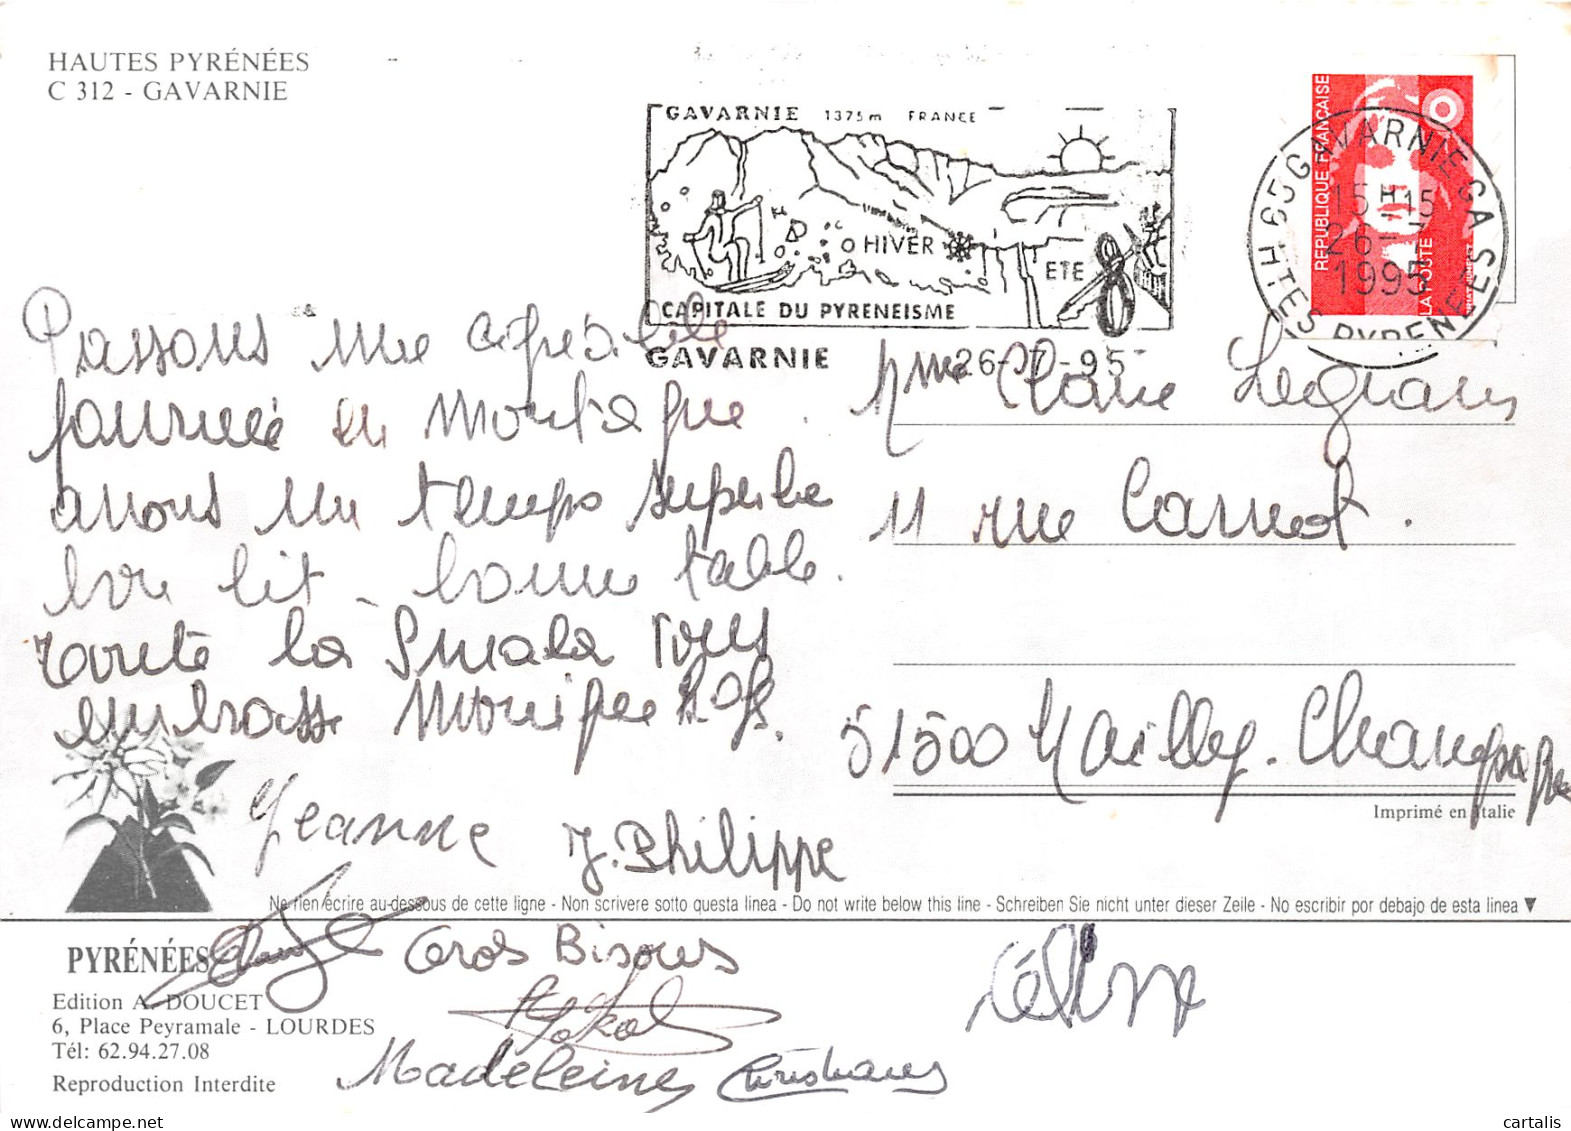 HAUTES PYRÉNÉES
C 312 - GAVARNIE
GAVARNIE 1375 m FRANCE
HIVER
ETE
CAPITALE DU PYRENEISME
GAVARNIE 26-07-95
REPUBLIQUE FRANÇAISE
LA POSTE
65 GAVARNIE SA
15H15
26-7
1995
HTES PYRENEES
Passons une agréable
journée en Montagne.
avons un temps superbe
bon lit - bonne table.
toute la Smala vous
embrasse Monique
Jeanne J. Philippe
Mme Claire
11 rue Carnot.
51500 Mailly-Champagne
Imprimé en Italie
Ne rien écrire au-dessous de cette ligne - Non scrivere sotto questa linea - Do not write below this line - Schreiben Sie nicht unter dieser Zeile - No escribir por debajo de esta linea ▼
PYRÉNÉES
Gros Bisous
Edition A. DOUCET
6, Place Peyramale - LOURDES
Tél: 62.94.27.08
Reproduction Interdite
Madeleine
cartalis